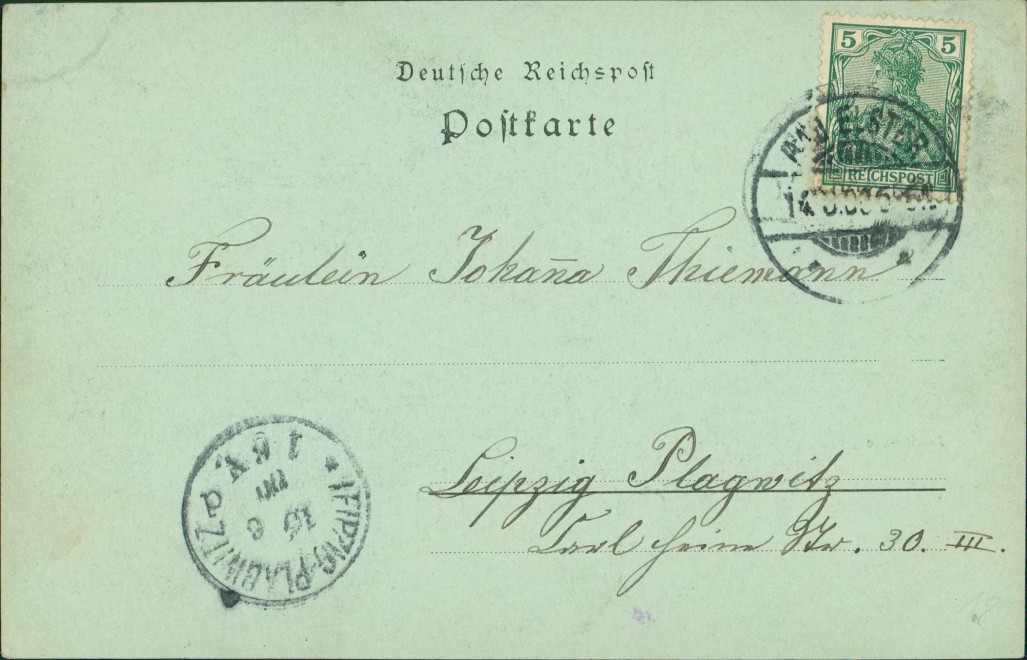 Deutsche Reichspost
Postkarte
5 5
REICHSPOST
ELSTER
Fräulein Johan̄a Thiemann
Leipzig Plagwitz
Carl Heine Str. 30. III.
LEIPZIG-PLAGWITZ